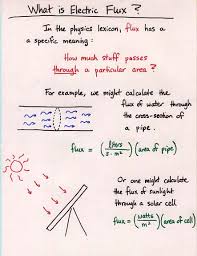 What is Electric Flux?
In the physics lexicon, flux has a
a specific meaning:
How much stuff passes
through a particular area?
For example, we might calculate the
flux of water through
the cross-section of
a pipe.
flux = (liters / s·m²)(area of pipe)
Or one might calculate
the flux of sunlight
through a solar cell
flux = (watts / m²)(area of cell)